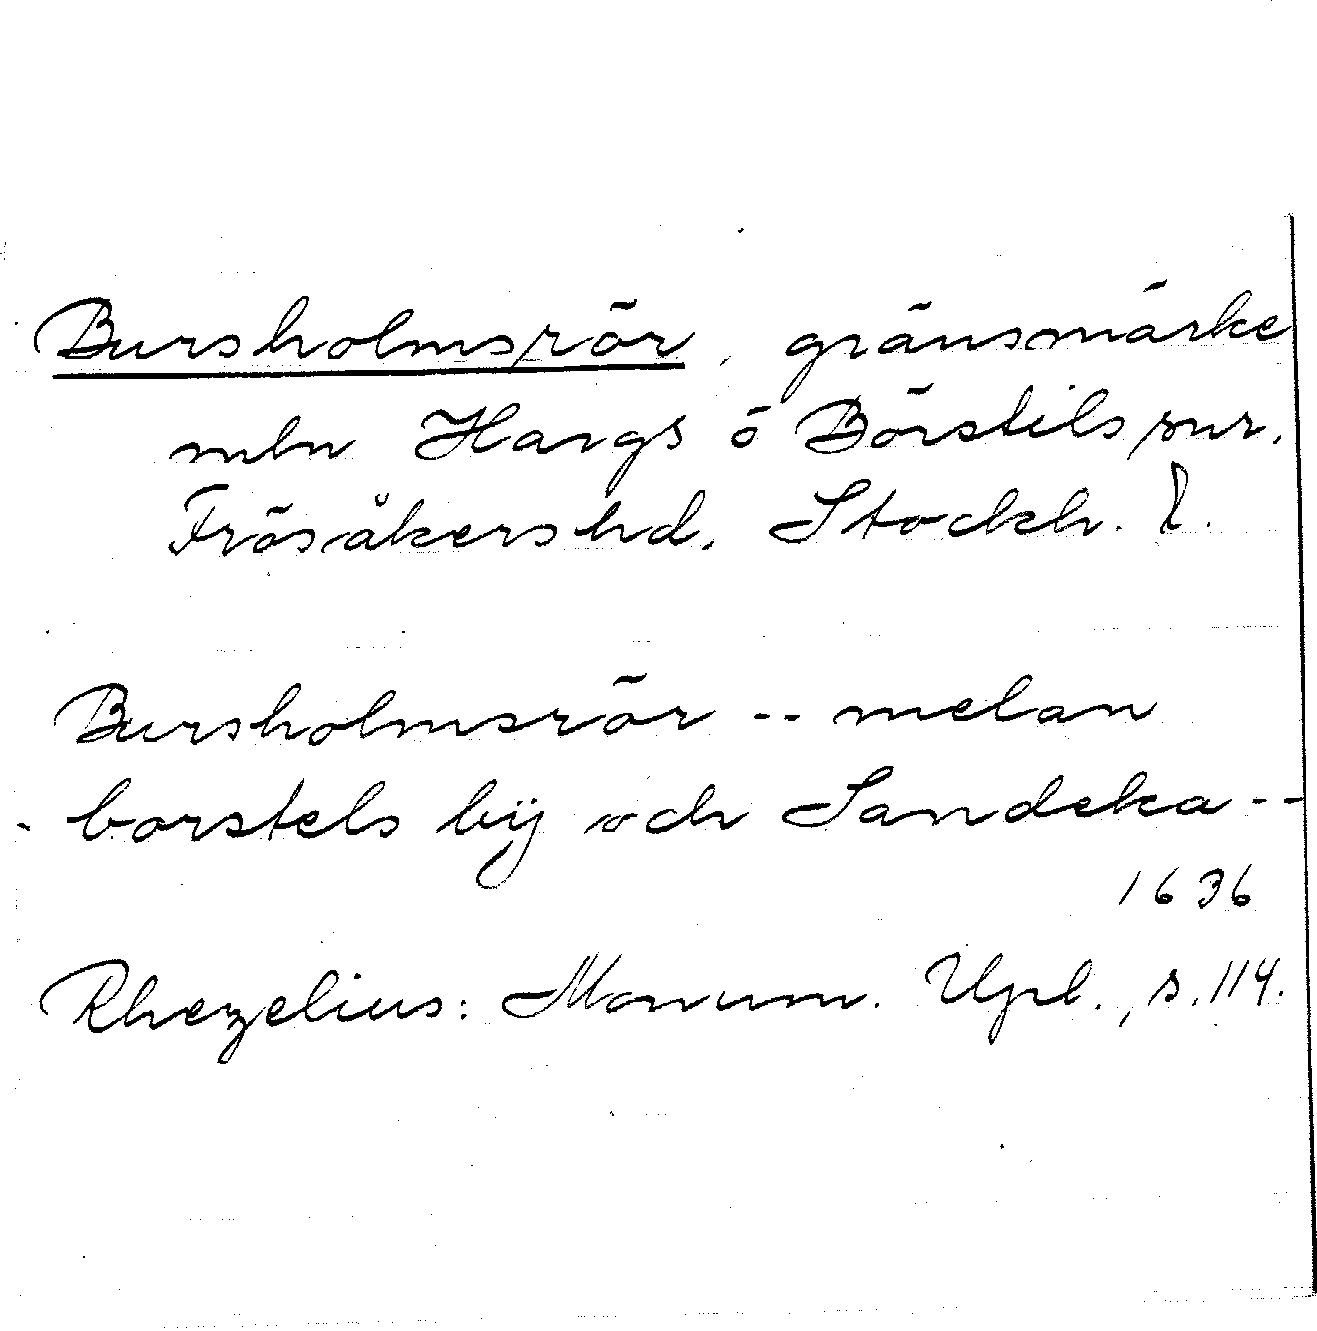 Bursholmsrör, gränsmärke
mln Hargs o Börstils snr.
Frösåkers hd. Stockh. l.
Bursholmsrör -- melan
- borstels bÿ och Sandeka --
1636
Rhezelius: Monum. Upl., s. 114.